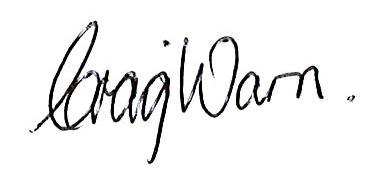 Craig Warn.